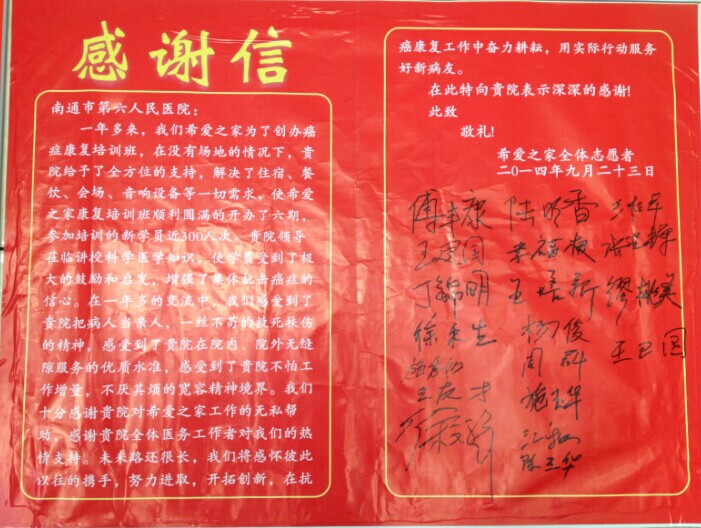 感谢信
南通市第六人民医院：
一年多来，我们希爱之家为了创办癌
症康复培训班，在没有场地的情况下，贵
院给予了全方位的支持，解决了住宿、餐
饮、会场、音响设备等一切需求，使希爱
之家康复培训班顺利圆满的开办了六期，
参加培训的新学员近300人次、贵院领导
莅临讲授科学医学知识，使学员受到了极
大的鼓励和启发，增强了集体抗击癌症的
信心。在一年多的交流中，我们感受到了
贵院把病人当亲人，一丝不苟的救死扶伤
的精神，感受到了贵院在院内、院外无缝
隙服务的优质水准，感受到了贵院不怕工
作增量，不厌其烦的宽容精神境界。我们
十分感谢贵院对希爱之家工作的无私帮
助，感谢贵院全体医务工作者对我们的热
情支持。未来路还很长，我们将感怀彼此
以往的携手，努力进取，开拓创新，在抗
癌康复工作中奋力耕耘，用实际行动服务
好新病友。
在此特向贵院表示深深的感谢!
此致
敬礼!
希爱之家全体志愿者
二0一四年九月二十三日
傅丰康 陆明香
丁锦明 王培新
杨俊
周群
王友才 施玉华
陈兰华